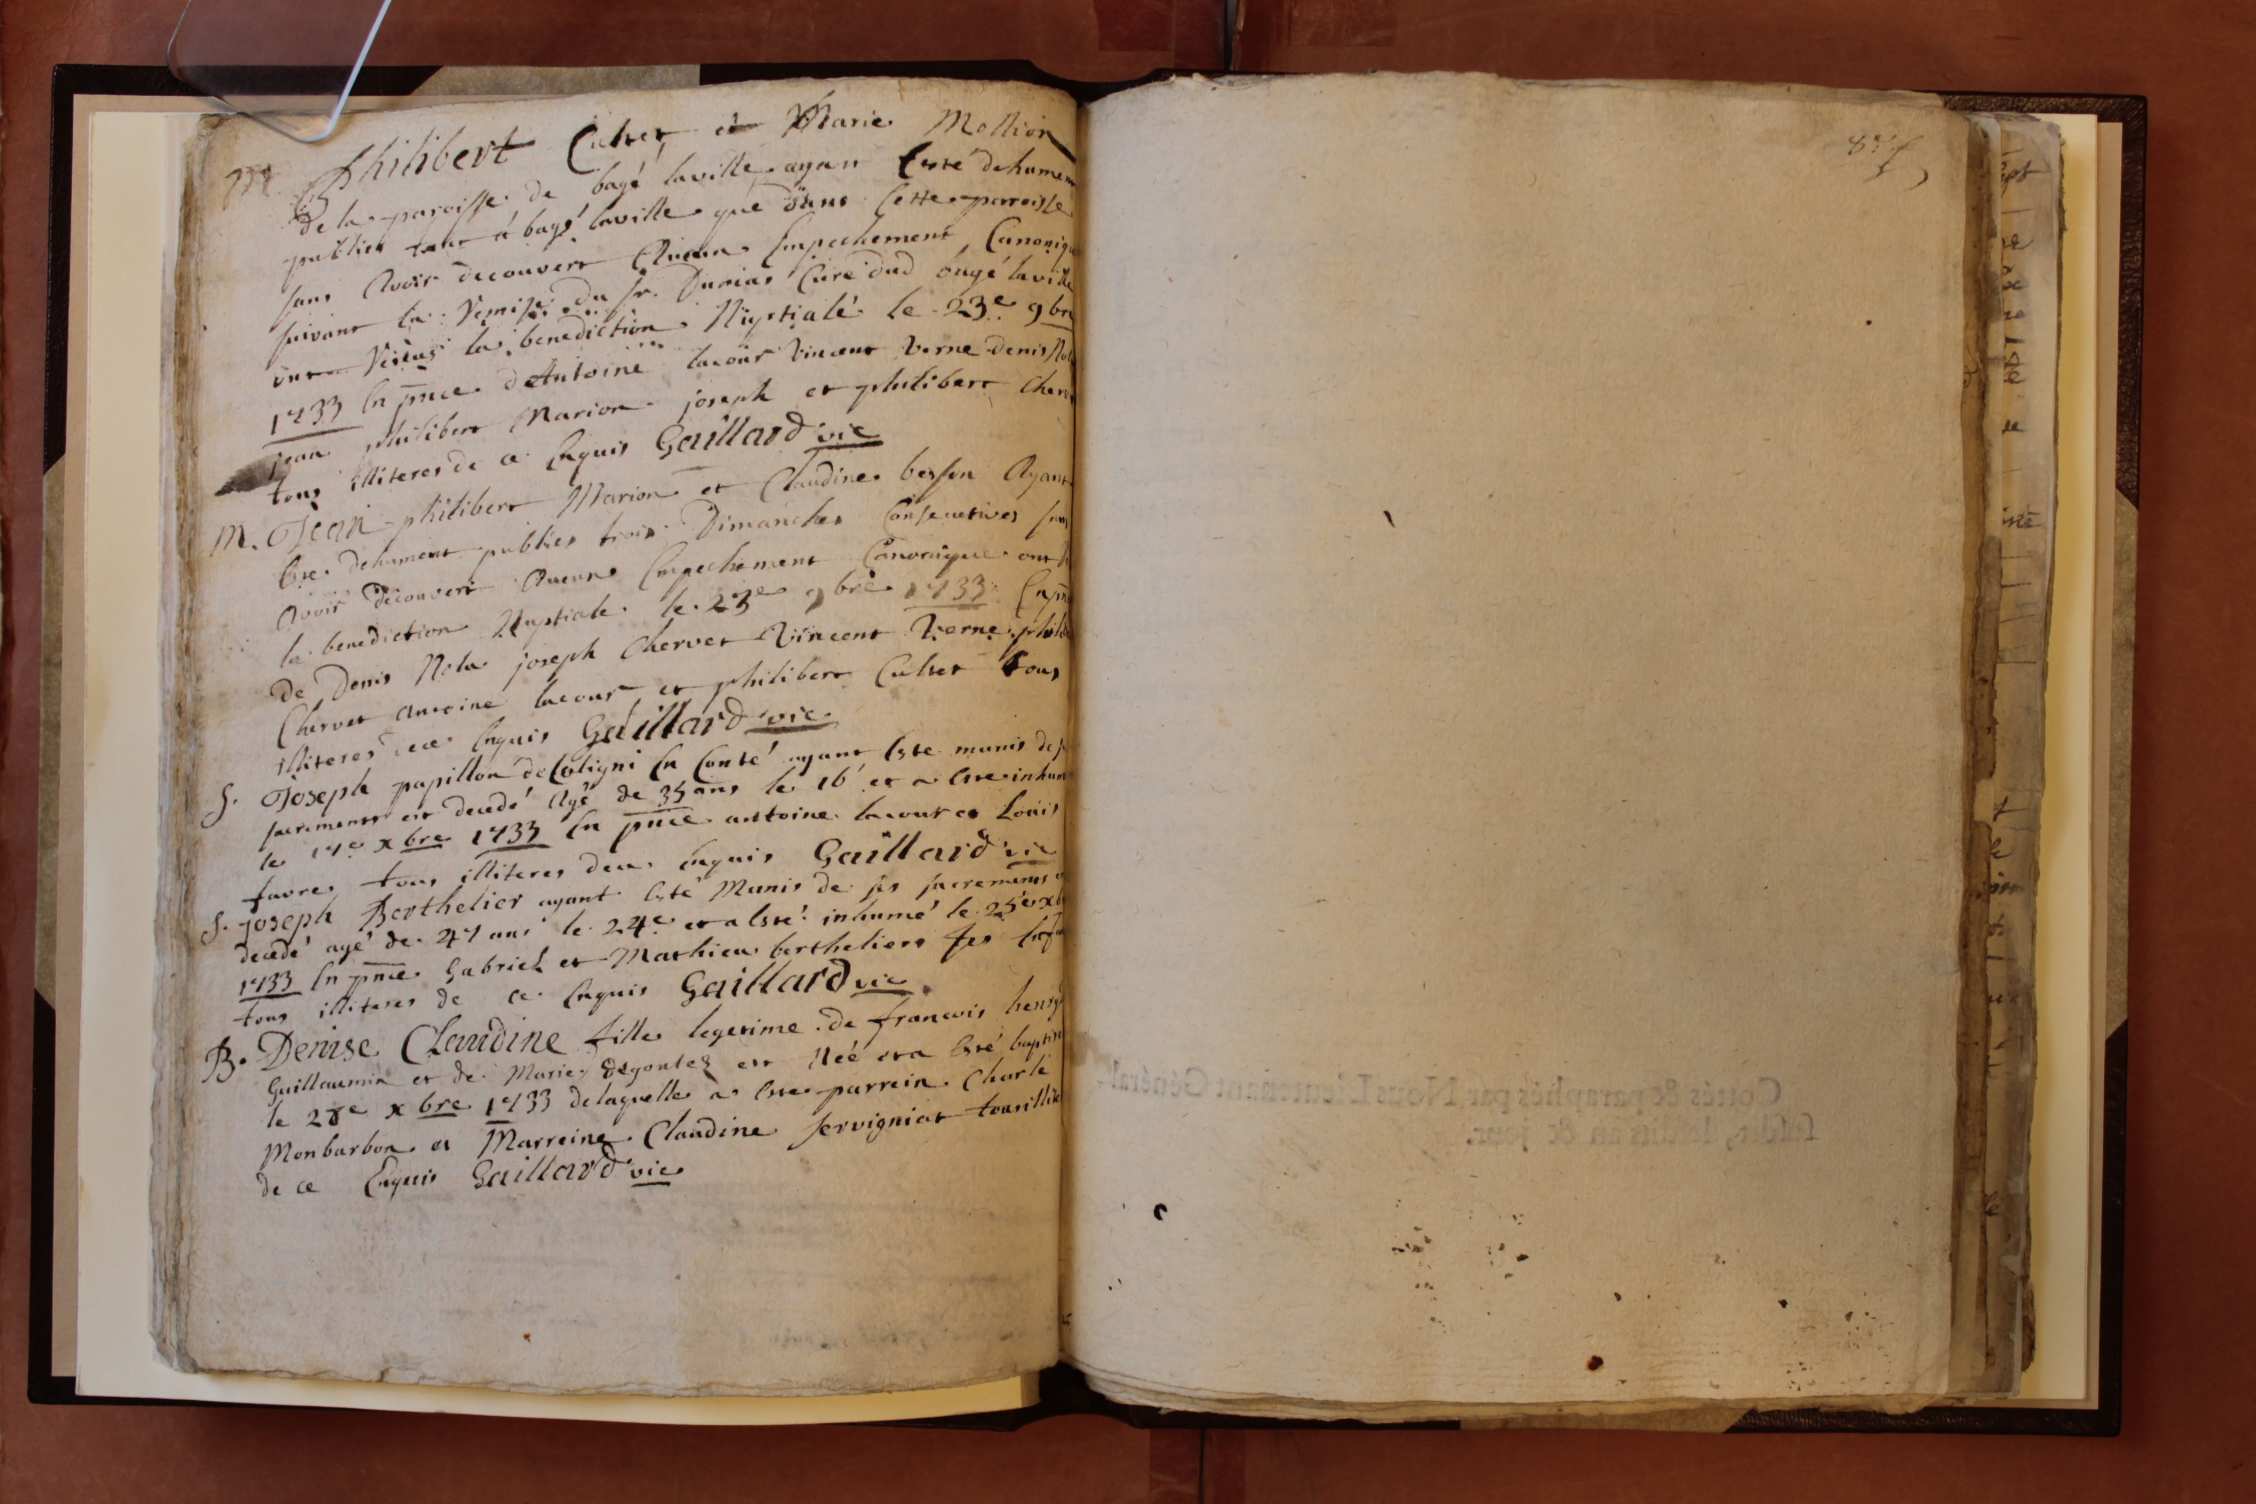 M Philibert Culset et Marie Mollion
de la paroisse de bagé laville ayan Esté dehumen
publies tant á bagé laville que dans Cette parroisse
sans Avoir decouvert Aucun Empechement Canoniqu
suivant la Remise du sr. Dumas Curé dud bagé laville
ont la benediction Nuptiale le 23e 9bre
1733 En pnce d'Antoine lacour Vincent Verne denis Nol
jean philibert Marion joseph et philibert Cherv
tous illiteres de ce Enquis Gaillard vic
M. Jean philibert Marion et Claudine besson Ayant
Este dehument publies trois Dimanches Consecutives sans
Avoir decouvert Aucune Empechement Canonique ont
la benediction Nuptiale le 23e 9bre 1733 En pn
de Denis Nola joseph Chervet Vincent Verne phil
Chervet Antoine lacour et philibert Culset tous
illiteres de ce Enquis Gaillard vic.
S. Joseph papillon de Coligni En Conté ayant Este munis de
sacrements est decedé Agé de 35 ans le 16 et a Este inhum
le 17e xbre 1733 En pnce antoine lacour et Louis
favre tous illiteres de ce Enquis Gaillard vic
S. joseph Berthelier ayant Esté Munis de ses sacrements
decedé agé de 47 ans le 24e et a Esté inhumé le 25e xb
1733 En pnce Gabriel et Mathieu bertheliers ses Enfa
tous illiteres de ce Enquis Gaillard vic.
B. Denise Claudine fille legetime de francois henry
Guillaumin et de Marie degoutes est Née et a Esté baptis
le 28e xbre 1733 de laquelle a Este parrein Charle
Monbarbon et Marreine Claudine servigniat tous illite
de ce Enquis Gaillard vic
Cottés & paraphés par Nous Lieutenant Général
susdit, lesdits an & jour.